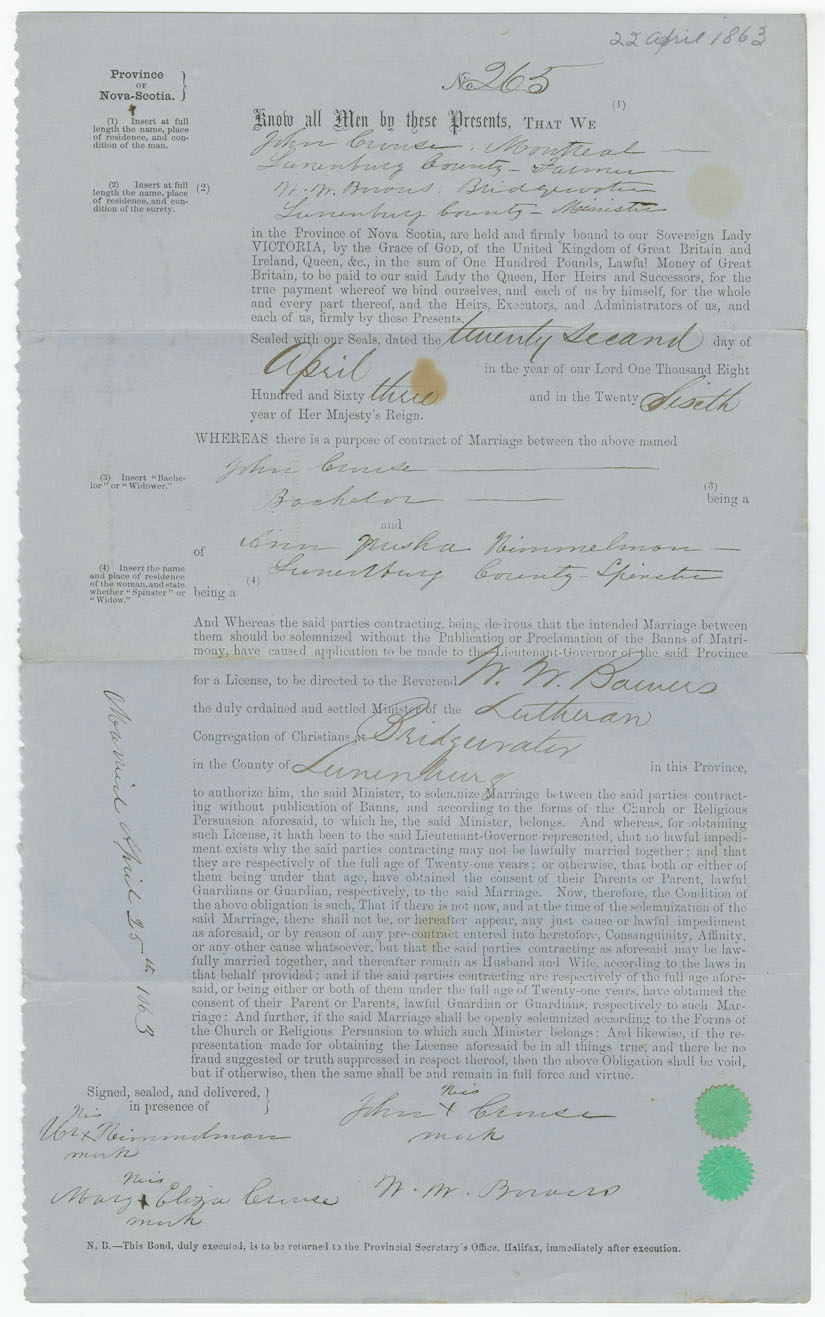 22 April 1863
Province
OF
Nova-Scotia.
No 265
(1)
Know all Men by these Presents, THAT WE
(1) Insert at full
length the name, place
of residence, and con-
dition of the man.
John Crouse, Montreal
Lunenburg County - Farmer
(2) Insert at full
length the name, place
of residence, and con-
dition of the surety.
(2)
W. W. Bowers. Bridgewater
Lunenburg County - Minister
in the Province of Nova Scotia, are held and firmly bound to our Sovereign Lady
VICTORIA, by the Grace of GOD, of the United Kingdom of Great Britain and
Ireland, Queen, &c., in the sum of One Hundred Pounds, Lawful Money of Great
Britain, to be paid to our said Lady the Queen, Her Heirs and Successors, for the
true payment whereof we bind ourselves, and each of us by himself, for the whole
and every part thereof, and the Heirs, Executors, and Administrators of us, and
each of us, firmly by these Presents.
Sealed with our Seals, dated the twenty second day of
April in the year of our Lord One Thousand Eight
Hundred and Sixty three and in the Twenty Sixth
year of Her Majesty's Reign.
WHEREAS there is a purpose of contract of Marriage between the above named
John Crouse
(3) Insert "Bache-
lor" or "Widower."
Bachelor
(3)
being a
and
of Ann Himmelman
(4) Insert the name
and place of residence
of the woman, and state
whether "Spinster" or
"Widow."
(4)
being a Lunenburg County - Spinster
And Whereas the said parties contracting, being desirous that the intended Marriage between
them should be solemnized without the Publication or Proclamation of the Banns of Matri-
mony, have caused application to be made to the Lieutenant-Governor of the said Province
for a License, to be directed to the Reverend W. W. Bowers
the duly ordained and settled Minister of the Lutheran
Congregation of Christians at Bridgewater
in the County of Lunenburg in this Province,
to authorize him, the said Minister, to solemnize Marriage between the said parties contract-
ing without publication of Banns, and according to the forms of the Church or Religious
Persuasion aforesaid, to which he, the said Minister, belongs. And whereas, for obtaining
such License, it hath been to the said Lieutenant-Governor represented, that no lawful impedi-
ment exists why the said parties contracting may not be lawfully married together; and that
they are respectively of the full age of Twenty-one years; or otherwise, that both or either of
them being under that age, have obtained the consent of their Parents or Parent, lawful
Guardians or Guardian, respectively, to the said Marriage. Now, therefore, the Condition of
the above obligation is such, That if there is not now, and at the time of the solemnization of the
said Marriage, there shall not be, or hereafter appear, any just cause or lawful impediment
as aforesaid, or by reason of any pre-contract entered into heretofore, Consanguinity, Affinity,
or any other cause whatsoever, but that the said parties contracting as aforesaid may be law-
fully married together, and thereafter remain as Husband and Wife, according to the laws in
that behalf provided; and if the said parties contracting are respectively of the full age afore-
said, or being either or both of them under the full age of Twenty-one years, have obtained the
consent of their Parent or Parents, lawful Guardian or Guardians, respectively to such Mar-
riage: And further, if the said Marriage shall be openly solemnized according to the Forms of
the Church or Religious Persuasion to which such Minister belongs: And likewise, if the re-
presentation made for obtaining the License aforesaid be in all things true, and there be no
fraud suggested or truth suppressed in respect thereof, then the above Obligation shall be void,
but if otherwise, then the same shall be and remain in full force and virtue.
Married April 25th 1863
Signed, sealed, and delivered,
in presence of
his
John X Crouse
mark
his
Wm X Himmelman
mark
his
Mary X Eliza Crouse
mark
W. W. Bowers
N. B.—This Bond, duly executed, is to be returned to the Provincial Secretary's Office, Halifax, immediately after execution.